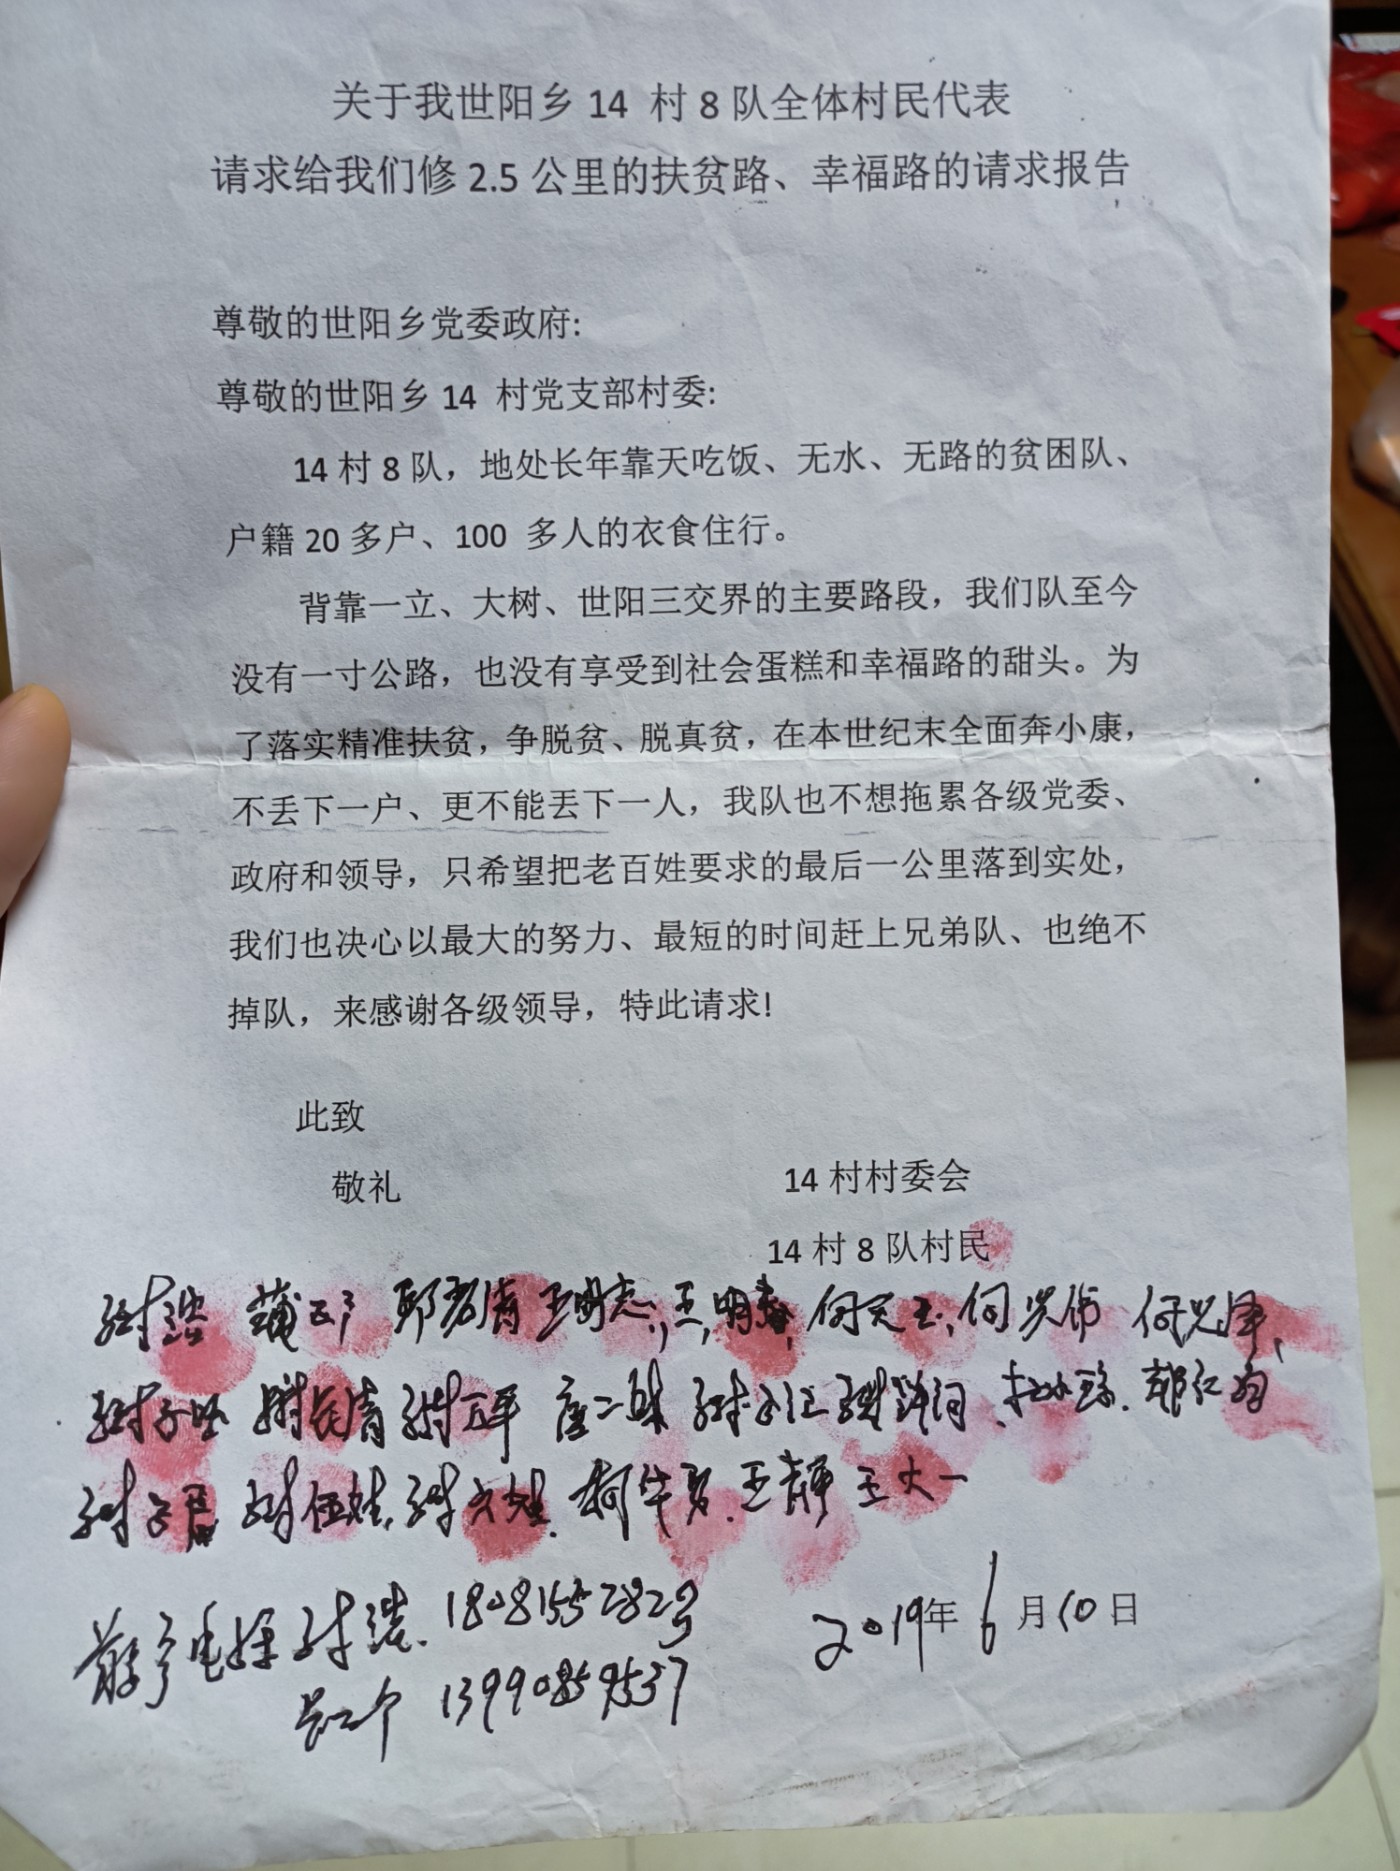 关于我世阳乡 14 村 8 队全体村民代表
请求给我们修 2.5 公里的扶贫路、幸福路的请求报告
尊敬的世阳乡党委政府:
尊敬的世阳乡 14 村党支部村委:
14 村 8 队，地处长年靠天吃饭、无水、无路的贫困队、
户籍 20 多户、100 多人的衣食住行。
背靠一立、大树、世阳三交界的主要路段，我们队至今
没有一寸公路，也没有享受到社会蛋糕和幸福路的甜头。为
了落实精准扶贫，争脱贫、脱真贫，在本世纪末全面奔小康，
不丢下一户、更不能丢下一人，我队也不想拖累各级党委、
政府和领导，只希望把老百姓要求的最后一公里落到实处，
我们也决心以最大的努力、最短的时间赶上兄弟队、也绝不
掉队，来感谢各级领导，特此请求!
此致
敬礼
14 村村委会
14 村 8 队村民
王明志, 王明春, 何天玉, 何兴伟 何兴泽,
王静 王大一
18081552829
13990859537
2019年 6 月 10 日